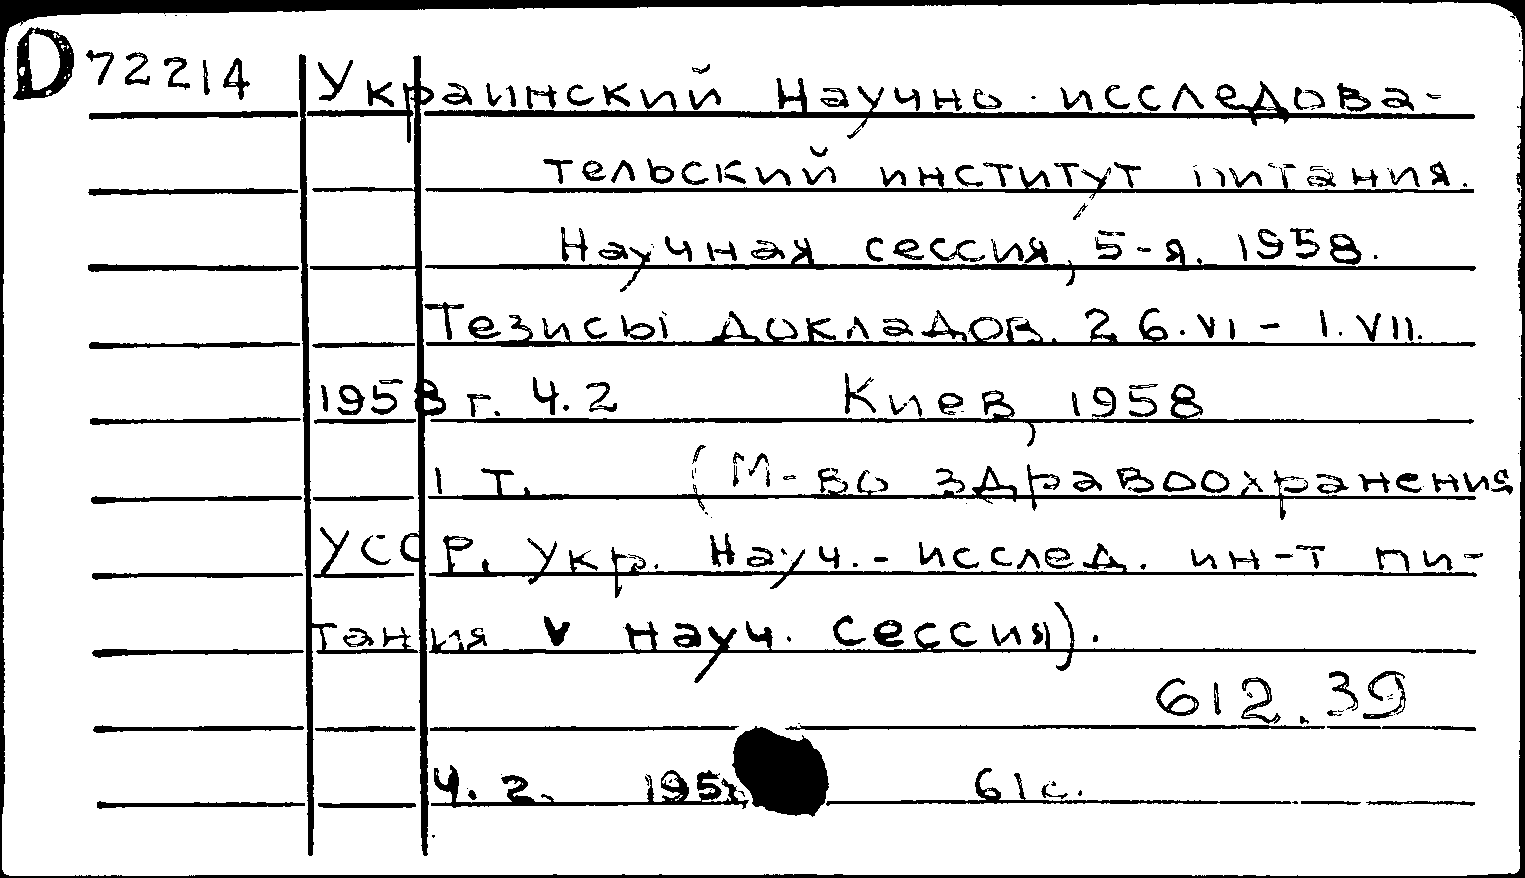 D 72214 Украинский Научно-исследова-
тельский институт питания.
Научная сессия, 5-я. 1958.
Тезисы докладов. 26.VI - 1.VII.
1958 г. Ч. 2 Киев, 1958
1 т. (М-во здравоохранения
УССР. Укр. Науч.-исслед. ин-т пи-
тания V науч. сессия).
612.39
Ч. 2. 195 61 с.